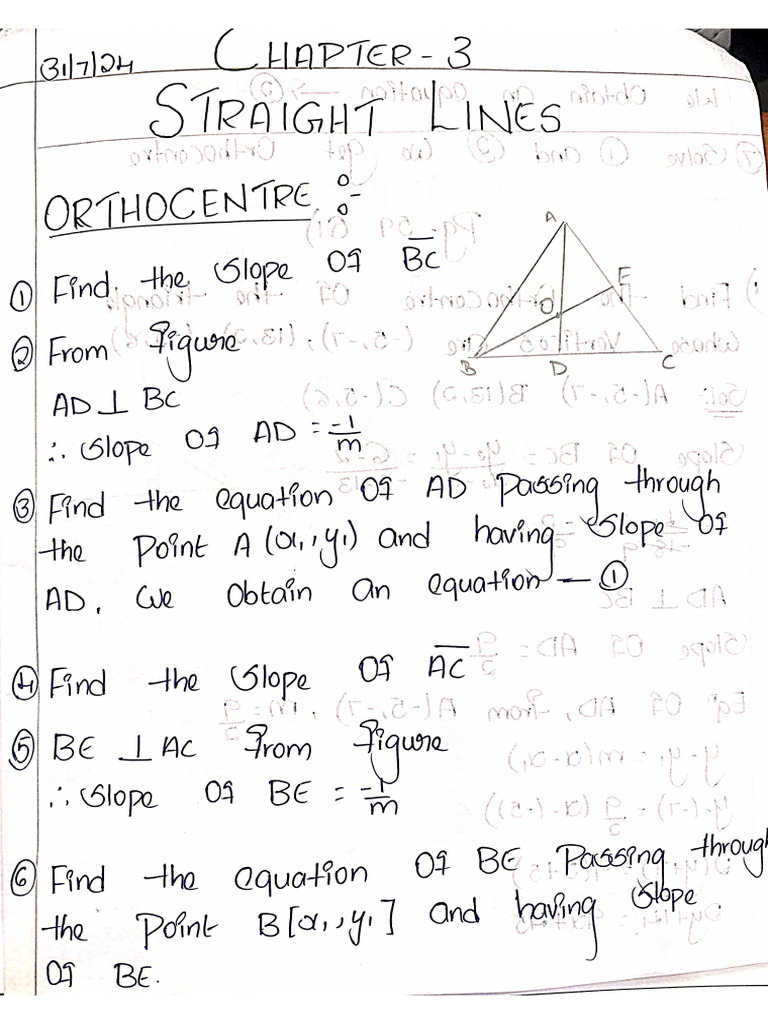 31/7/24
CHAPTER-3
STRAIGHT LINES
ORTHOCENTRE :-
① Find the Slope Of B̅C̅
② From figure
AD ⊥ BC
∴ Slope Of AD = -1/m
③ Find the equation Of AD Passing through
the Point A (x₁, y₁) and having Slope Of
AD. We Obtain An equation — ①
④ Find the Slope Of A̅C̅
⑤ BE ⊥ AC From figure
∴ Slope Of BE = -1/m
⑥ Find the equation Of BE Passing through
the Point B[x₁, y₁] and having Slope
Of BE.
A
E
O
B
D
C